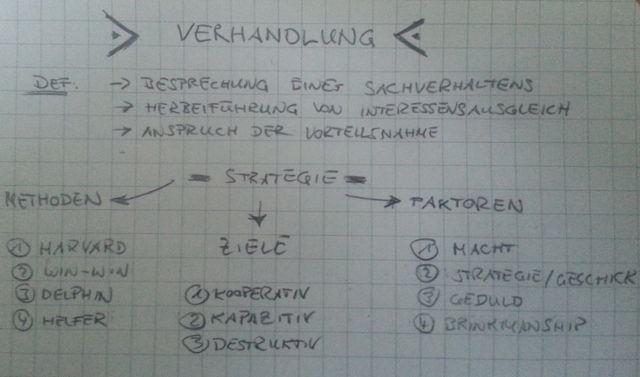 VERHANDLUNG
DEF: → BESPRECHUNG EINES SACHVERHALTENS
→ HERBEIFÜHRUNG VON INTERESSENSAUSGLEICH
→ ANSPRUCH DER VORTEILSNAHME
STRATEGIE
METHODEN
① HARVARD
② WIN-WIN
③ DELPHIN
④ HELFER
ZIELE
① KOOPERATIV
② KAPAZITIV
③ DESTRUKTIV
FAKTOREN
① MACHT
② STRATEGIE/GESCHICK
③ GEDULD
④ BRINKMANSHIP